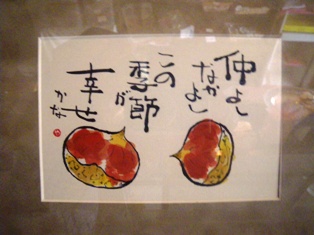 仲よし
なかよし
この
季節が
幸せ
かな